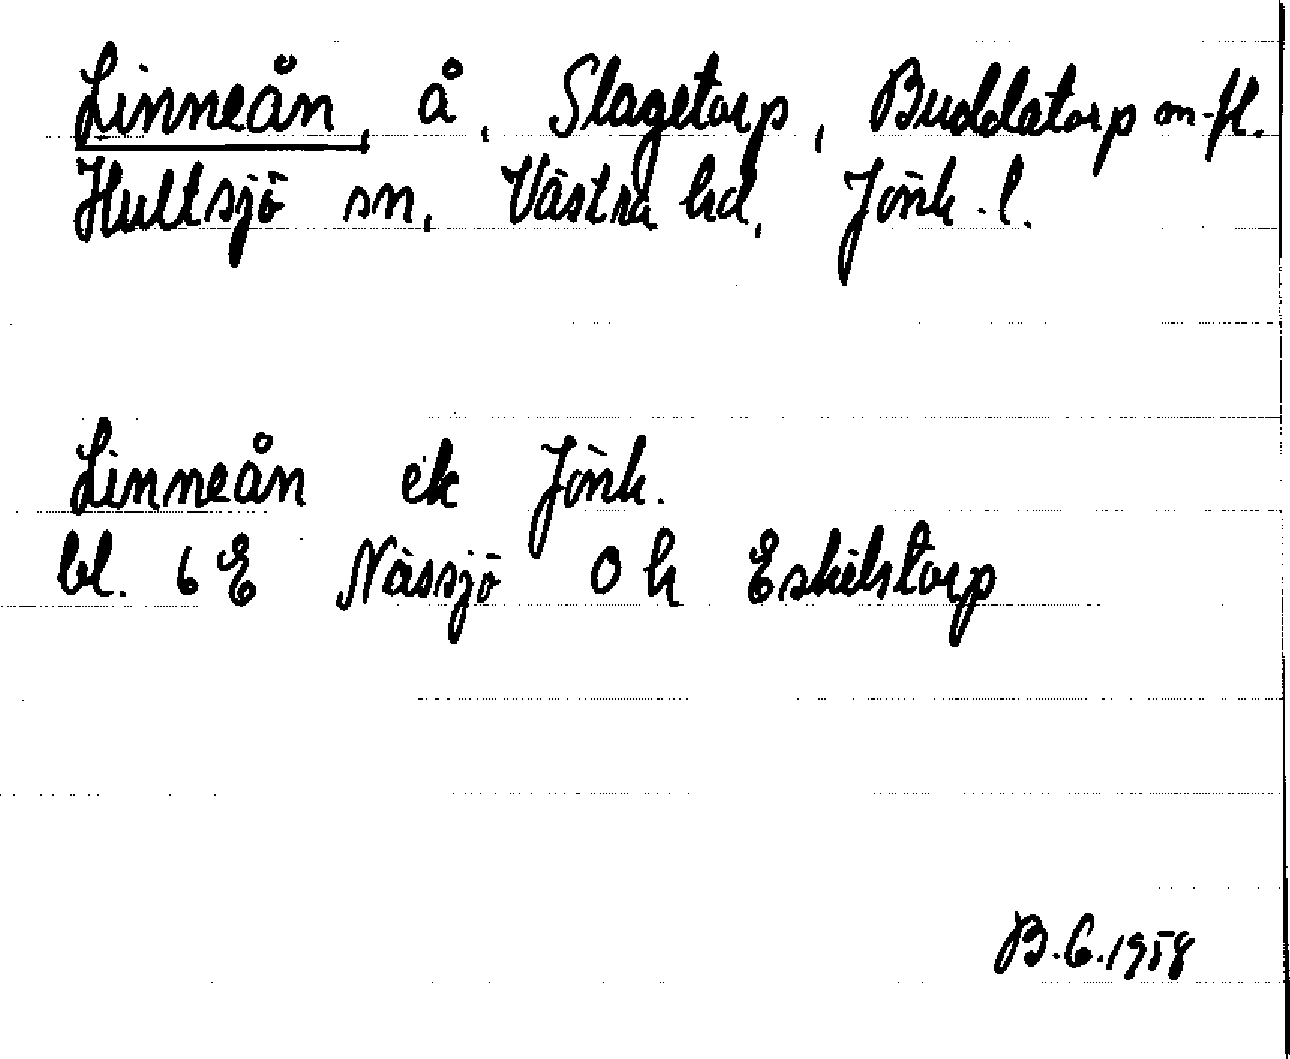 Linneån, å, Slagetorp, Buddatorp m.fl.
Hultsjö sn, Västra hd, Jönk. l.
Linneån ek Jönk.
bl. 6 E Nässjö O k Eskilstorp
B.G.1958